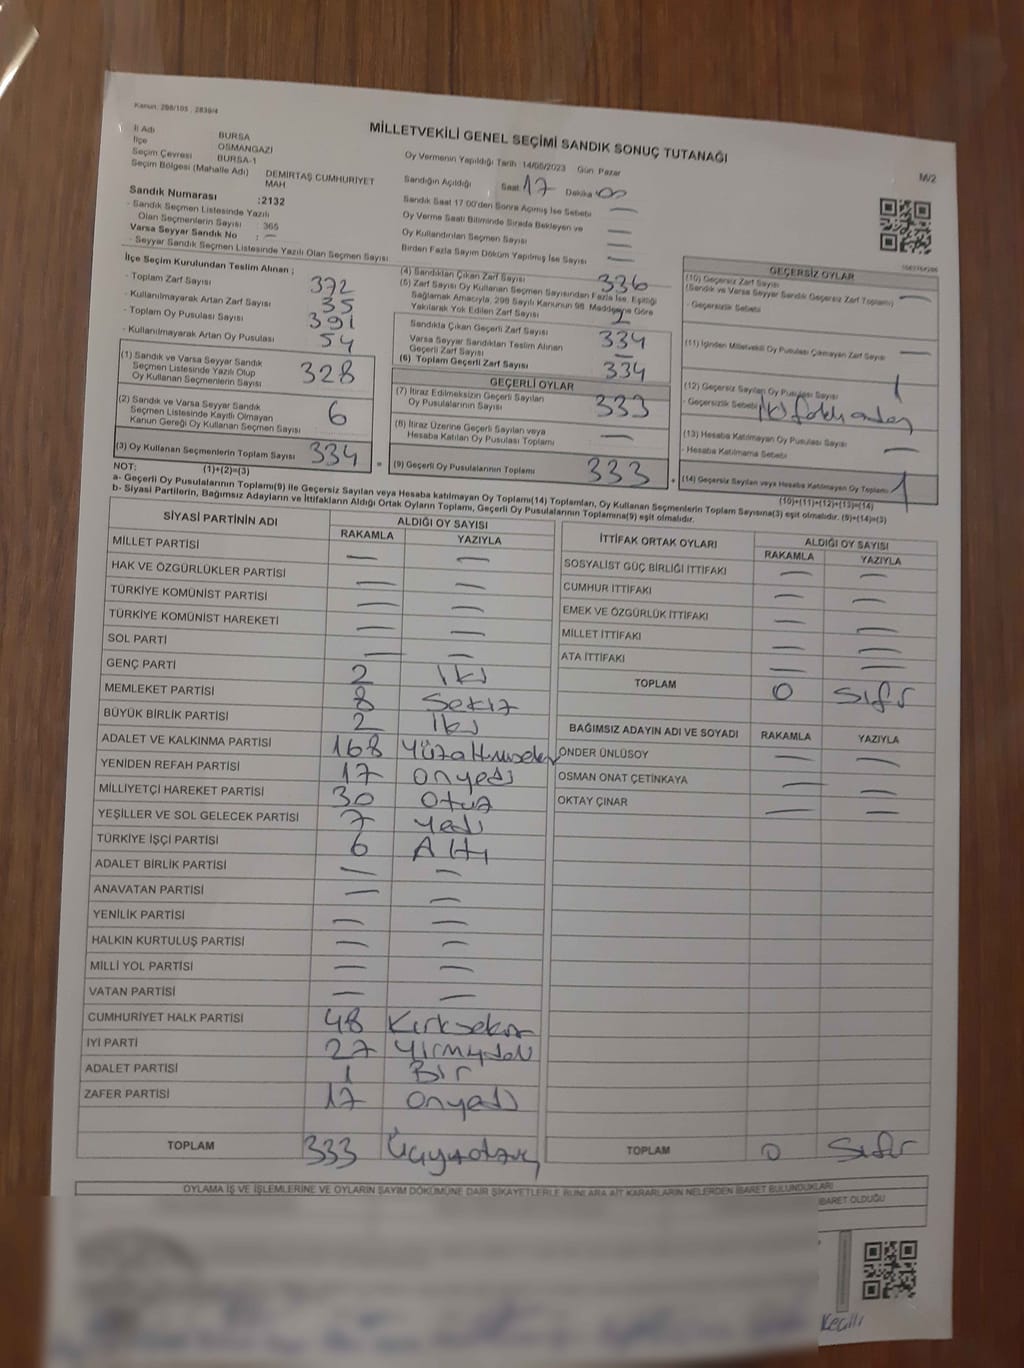 Kanun: 298/105 , 2839/4
MİLLETVEKİLİ GENEL SEÇİMİ SANDIK SONUÇ TUTANAĞI
M/2
İl Adı BURSA
İlçe OSMANGAZİ
Seçim Çevresi BURSA-1
Seçim Bölgesi (Mahalle Adı) DEMİRTAŞ CUMHURİYET MAH
Sandık Numarası :2132
- Sandık Seçmen Listesinde Yazılı
Olan Seçmenlerin Sayısı 365
Varsa Seyyar Sandık No : —
- Seyyar Sandık Seçmen Listesinde Yazılı Olan Seçmen Sayısı
Oy Vermenin Yapıldığı Tarih 14/05/2023 Gün Pazar
Sandığın Açıldığı Saat 17 Dakika 00
Sandık Saat 17:00'den Sonra Açılmış İse Sebebi —
Oy Verme Saati Bitiminde Sırada Bekleyen ve
Oy Kullandırılan Seçmen Sayısı —
Birden Fazla Sayım Döküm Yapılmış İse Sayısı —
İlçe Seçim Kurulundan Teslim Alınan ;
- Toplam Zarf Sayısı 372
- Kullanılmayarak Artan Zarf Sayısı 35
- Toplam Oy Pusulası Sayısı 391
- Kullanılmayarak Artan Oy Pusulası 54
(1) Sandık ve Varsa Seyyar Sandık
Seçmen Listesinde Yazılı Olup
Oy Kullanan Seçmenlerin Sayısı 328
(2) Sandık ve Varsa Seyyar Sandık
Seçmen Listesinde Kayıtlı Olmayan
Kanun Gereği Oy Kullanan Seçmen Sayısı 6
(3) Oy Kullanan Seçmenlerin Toplam Sayısı 334
(4) Sandıktan Çıkan Zarf Sayısı 336
(5) Zarf Sayısı Oy Kullanan Seçmen Sayısından Fazla İse, Eşitliği
Sağlamak Amacıyla, 298 Sayılı Kanunun 98. Maddesine Göre
Yakılarak Yok Edilen Zarf Sayısı 2
Sandıkta Çıkan Geçerli Zarf Sayısı 334
Varsa Seyyar Sandıktan Teslim Alınan
Geçerli Zarf Sayısı —
(6) Toplam Geçerli Zarf Sayısı 334
GEÇERLİ OYLAR
(7) İtiraz Edilmeksizin Geçerli Sayılan
Oy Pusulalarının Sayısı 333
(8) İtiraz Üzerine Geçerli Sayılan veya
Hesaba Katılan Oy Pusulası Toplamı —
= (9) Geçerli Oy Pusulalarının Toplamı 333 +
GEÇERSİZ OYLAR
(10) Geçersiz Zarf Sayısı
(Sandık ve Varsa Seyyar Sandık Geçersiz Zarf Toplamı) —
- Geçersizlik Sebebi
(11) İçinden Milletvekili Oy Pusulası Çıkmayan Zarf Sayısı —
(12) Geçersiz Sayılan Oy Pusulası Sayısı 1
- Geçersizlik Sebebi
(13) Hesaba Katılmayan Oy Pusulası Sayısı
- Hesaba Katılmama Sebebi —
(14) Geçersiz Sayılan veya Hesaba Katılmayan Oy Toplamı 1
NOT: (1)+(2)=(3) (10)+(11)+(12)+(13)=(14)
a- Geçerli Oy Pusulalarının Toplamı(9) ile Geçersiz Sayılan veya Hesaba katılmayan Oy Toplamı(14) Toplamları, Oy Kullanan Seçmenlerin Toplam Sayısına(3) eşit olmalıdır. (9)+(14)=(3)
b- Siyasi Partilerin, Bağımsız Adayların ve İttifakların Aldığı Ortak Oyların Toplamı, Geçerli Oy Pusulalarının Toplamına(9) eşit olmalıdır.
SİYASİ PARTİNİN ADI ALDIĞI OY SAYISI
RAKAMLA YAZIYLA
MİLLET PARTİSİ — —
HAK VE ÖZGÜRLÜKLER PARTİSİ — —
TÜRKİYE KOMÜNİST PARTİSİ — —
TÜRKİYE KOMÜNİST HAREKETİ — —
SOL PARTİ — —
GENÇ PARTİ 2 İki
MEMLEKET PARTİSİ 8 Sekiz
BÜYÜK BİRLİK PARTİSİ 2 İki
ADALET VE KALKINMA PARTİSİ 168 Yüzaltmışsekiz
YENİDEN REFAH PARTİSİ 17 onyedi
MİLLİYETÇİ HAREKET PARTİSİ 30 Otuz
YEŞİLLER VE SOL GELECEK PARTİSİ 7 yedi
TÜRKİYE İŞÇİ PARTİSİ 6 Altı
ADALET BİRLİK PARTİSİ — —
ANAVATAN PARTİSİ — —
YENİLİK PARTİSİ — —
HALKIN KURTULUŞ PARTİSİ — —
MİLLİ YOL PARTİSİ — —
VATAN PARTİSİ — —
CUMHURİYET HALK PARTİSİ 48 Kırksekiz
İYİ PARTİ 27 Yirmiyedi
ADALET PARTİSİ 1 Bir
ZAFER PARTİSİ 17 Onyedi
TOPLAM 333
İTTİFAK ORTAK OYLARI ALDIĞI OY SAYISI
RAKAMLA YAZIYLA
SOSYALİST GÜÇ BİRLİĞİ İTTİFAKI — —
CUMHUR İTTİFAKI — —
EMEK VE ÖZGÜRLÜK İTTİFAKI — —
MİLLET İTTİFAKI — —
ATA İTTİFAKI — —
TOPLAM 0 Sıfır
BAĞIMSIZ ADAYIN ADI VE SOYADI RAKAMLA YAZIYLA
ÖNDER ÜNLÜSOY — —
OSMAN ONAT ÇETİNKAYA — —
OKTAY ÇINAR — —
TOPLAM 0 Sıfır
OYLAMA İŞ VE İŞLEMLERİNE VE OYLARIN SAYIM DÖKÜMÜNE DAİR ŞİKAYETLERLE BUNLARA AİT KARARLARIN NELERDEN İBARET BULUNDUKLARI
İBARET OLDUĞU